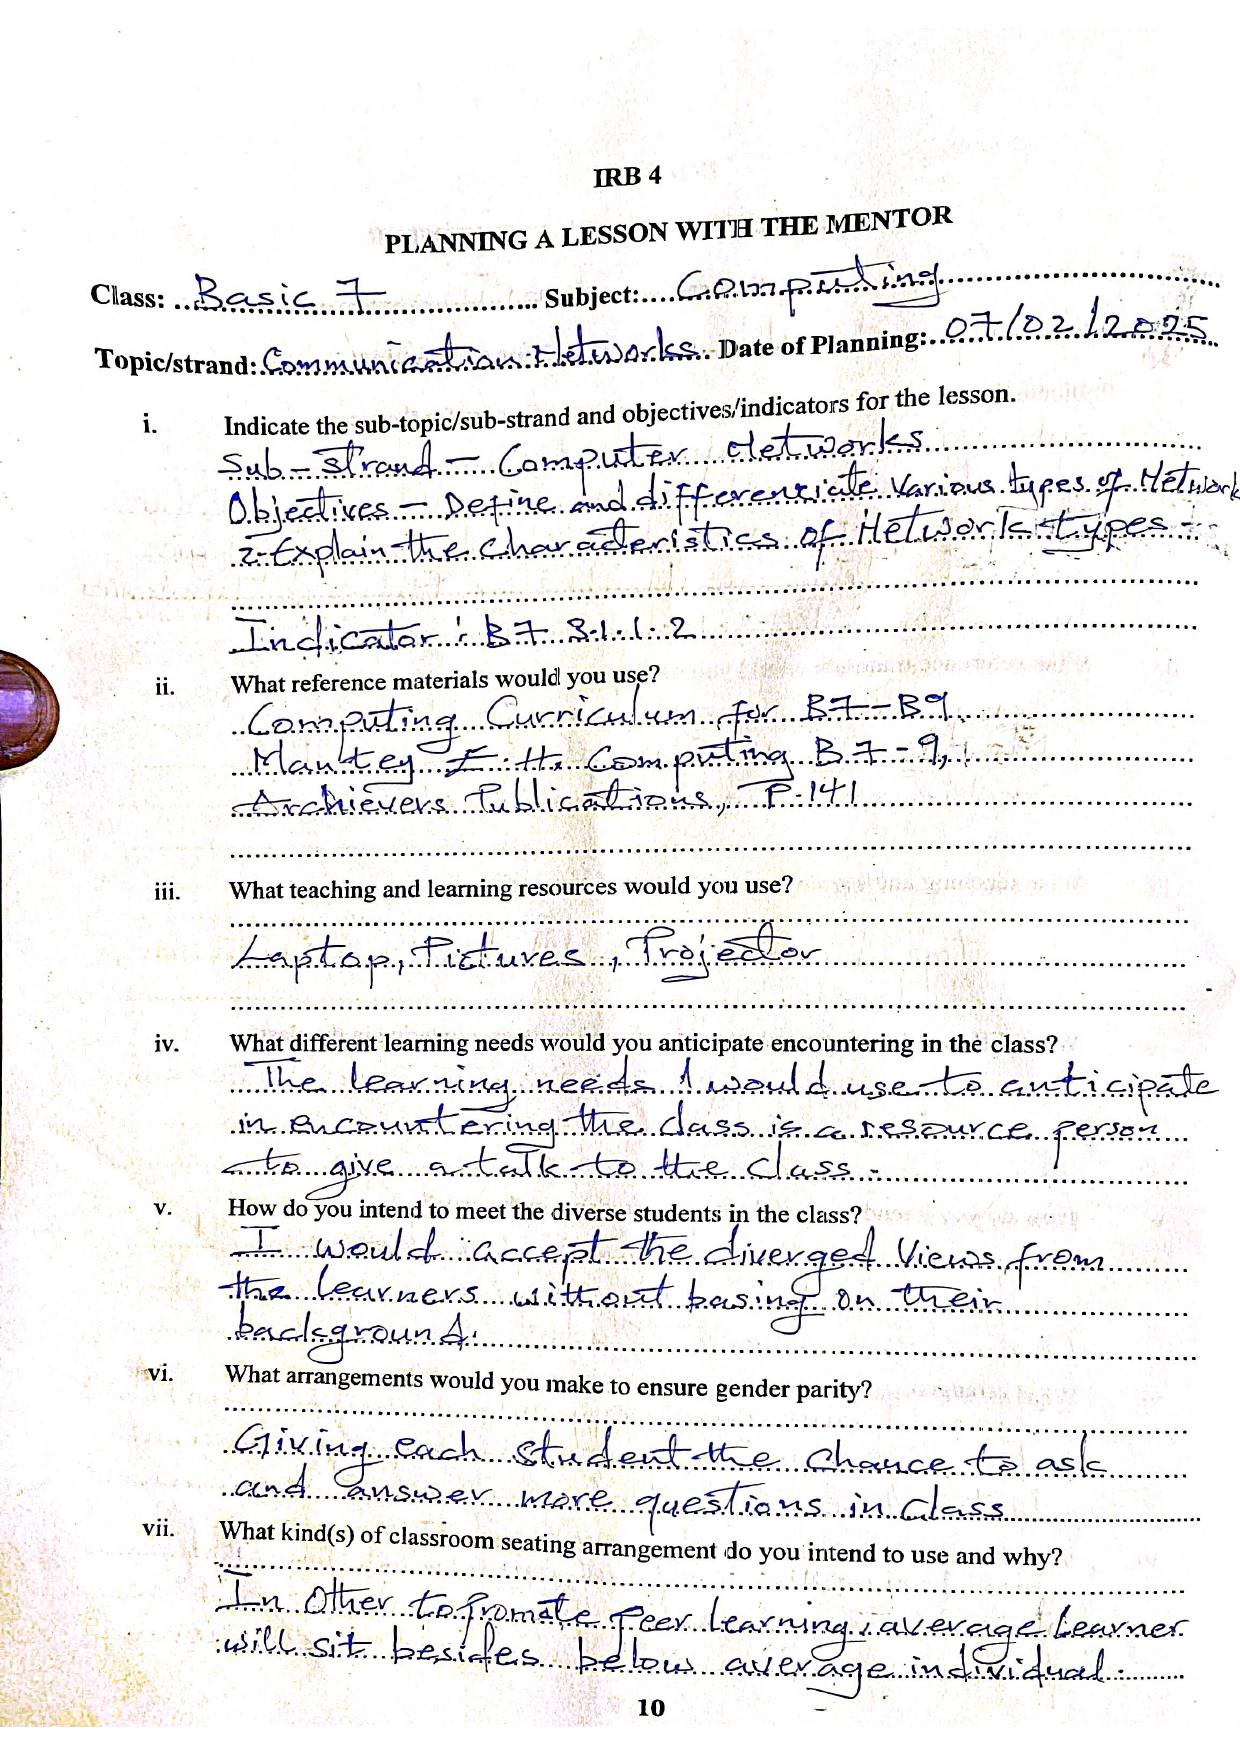 IRB 4
PLANNING A LESSON WITH THE MENTOR
Class: Basic 7 Subject: Computing
Topic/strand: Communication Networks Date of Planning: 07/02/2025
i. Indicate the sub-topic/sub-strand and objectives/indicators for the lesson.
Sub-strand - Computer Networks
Objectives - Define and differenciate various types of Network
2. Explain the characteristics of Network types -
Indicator: B7.3.1.1.2
ii. What reference materials would you use?
Computing Curriculum for B7-B9
Mantey E.H. Computing B7-9,
Archievers Publications, P.141
iii. What teaching and learning resources would you use?
Laptop, Pictures, Projector
iv. What different learning needs would you anticipate encountering in the class?
The learning needs I would use to anticipate
in encountering the class is a resource person
to give a talk to the class.
v. How do you intend to meet the diverse students in the class?
I would accept the diverged views from
the learners without basing on their
background.
vi. What arrangements would you make to ensure gender parity?
Giving each student the chance to ask
and answer more questions in class
vii. What kind(s) of classroom seating arrangement do you intend to use and why?
In Other to promote peer learning, average learner
will sit besides below average individual.
10